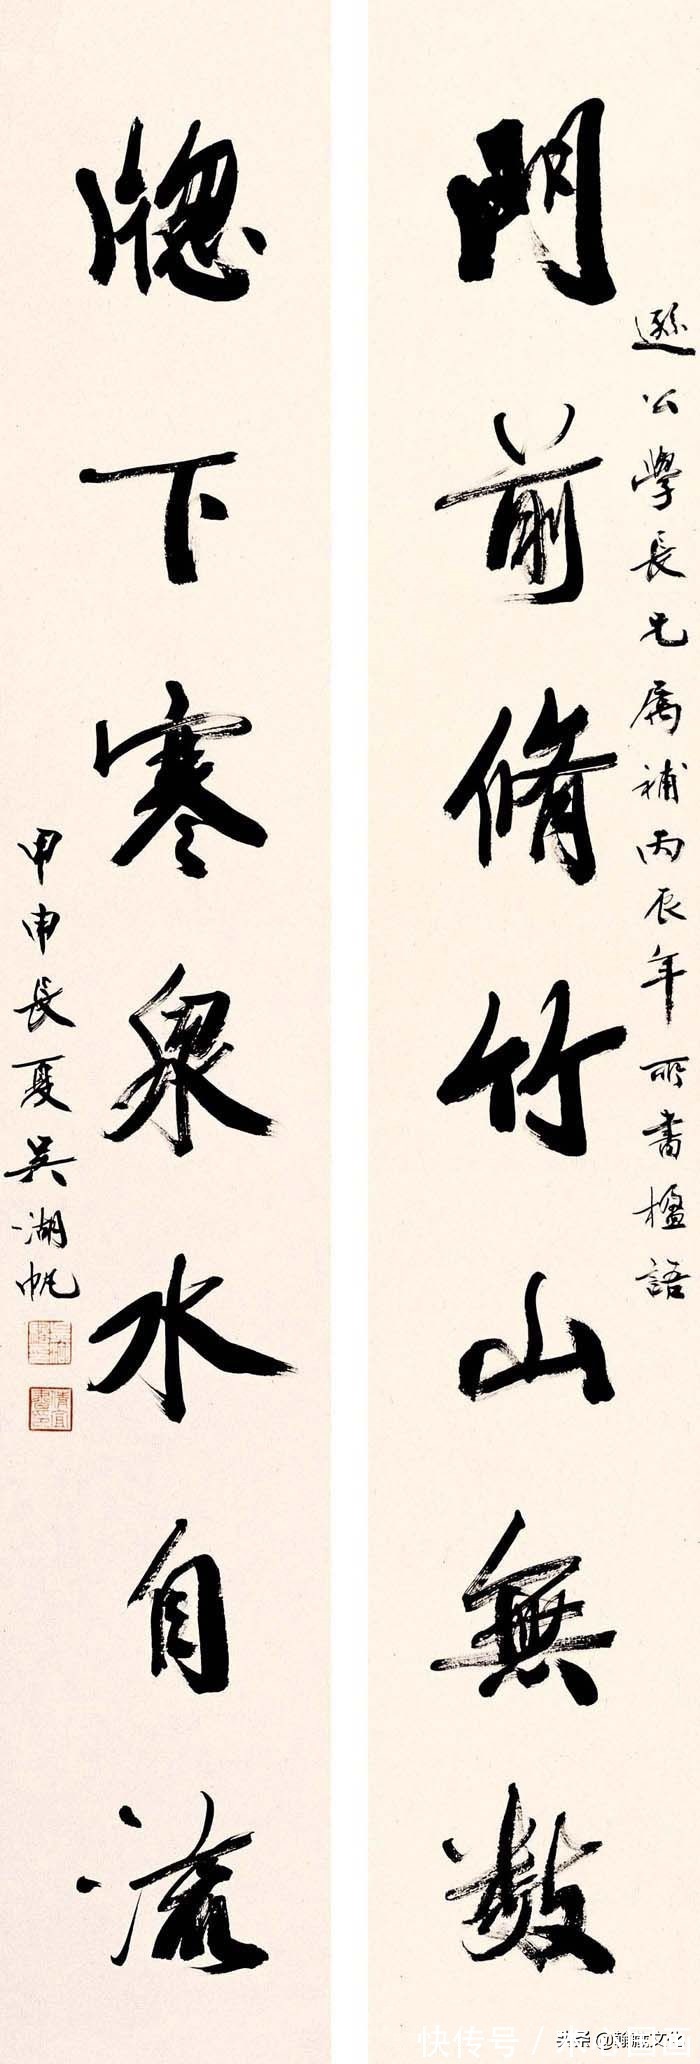 門前脩竹山無數
遜公學長兄屬補丙辰年所書楹語
牕下寒泉水自流
甲申長夏吳湖帆
快传号 /
头条